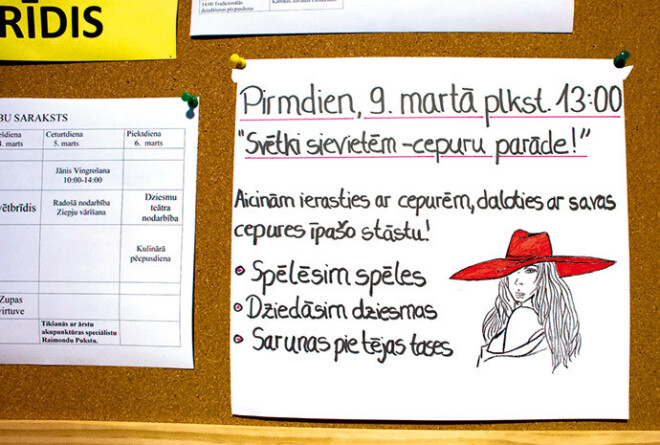 RĪDIS
14:00 Tradicionālās
BU SARAKSTS
Ceturtdiena
5. marts
Piekdiena
6. marts
Jānis Vingrošana
10:00-14:00
Radošā nodarbība
Ziepju vārīšana
Dziesmu
teātra
nodarbība
Kulinārā
pēcpusdiena
Zupas
virtuve
Tikšanās ar ārstu
akupunktūras speciālistu
Raimondu Pukstu.
Pirmdien, 9. martā plkst. 13:00
"Svētki sievietēm - cepuru parāde!"
Aicinām ierasties ar cepurēm, daloties ar savas
cepures īpašo stāstu!
Spēlēsim spēles
Dziedāsim dziesmas
Sarunas pie tējas tases